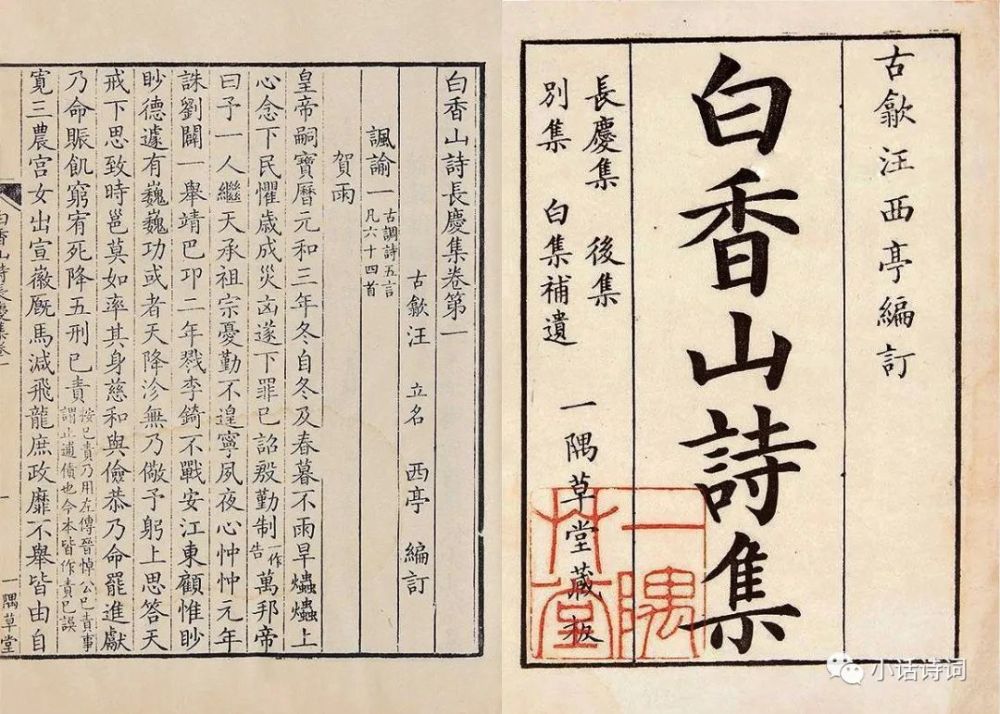 古歙汪西亭編訂
白香山詩集
長慶集 後集
別集 白集補遺
一隅草堂藏板
一隅草堂
小话诗词
白香山詩長慶集卷第一
古歙汪 立名 西亭 編訂
諷諭一 古調詩五言
凡六十四首
賀雨
皇帝嗣寶曆元和三年冬自冬及春暮不雨旱爞爞上
心念下民懼歲成災凶遂下罪已詔殷勤制一作告萬邦帝
曰予一人繼天承祖宗憂勤不遑寧夙夜心忡忡元年
誅劉闢一舉靖巴卭二年戮李錡不戰安江東顧惟眇
眇德遽有巍巍功或者天降沴無乃儆予躬上思答天
戒下思致時邕莫如率其身慈和與儉恭乃命罷進獻
乃命賑飢窮宥死降五刑已責按已責乃用左傳晉悼公已責事
謂止逋債也今本皆作責已誤
寛三農宮女出宣徽厩馬減飛龍庶政靡不舉皆由自
白香山詩長慶集卷一
一
一隅草堂